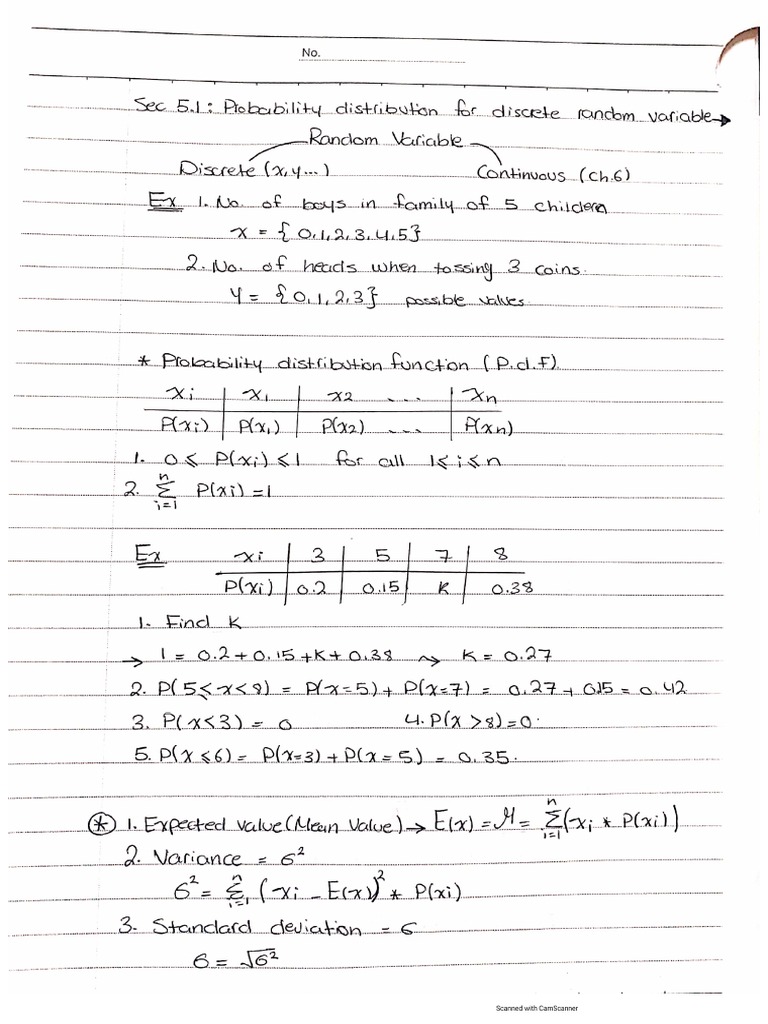 No.
Sec 5.1: Probability distribution for discrete random variable →
Random Variable
Discrete (x, y ...) Continuous (ch.6)
Ex 1. No. of boys in family of 5 children
x = { 0,1,2,3,4,5}
2. No. of heads when tossing 3 coins.
Y = {0,1,2,3} possible values
* Probability distribution function (P.d.F)
xi | x1 | x2 ... | xn
P(xi) | P(x1) | P(x2) ... | P(xn)
1. 0 ≤ P(xi) ≤ 1 for all 1 ≤ i ≤ n
2. n∑i=1 P(xi) = 1
Ex xi | 3 | 5 | 7 | 8
P(xi) | 0.2 | 0.15 | K | 0.38
1. Find K
→ 1 = 0.2 + 0.15 + K + 0.38 ⇝ K = 0.27
2. P(5 ≤ x < 8) = P(x=5) + P(x=7) = 0.27 + 0.15 = 0.42
3. P(x < 3) = 0 4. P(x > 8) = 0.
5. P(x ≤ 6) = P(x=3) + P(x=5) = 0.35.
* 1. Expected value (Mean Value) → E(x) = M = n∑i=1 (xi * P(xi))
2. Variance = 6²
6² = n∑i=1 (xi - E(x))² * P(xi)
3. Standard deviation = 6
6 = √6²
Scanned with CamScanner